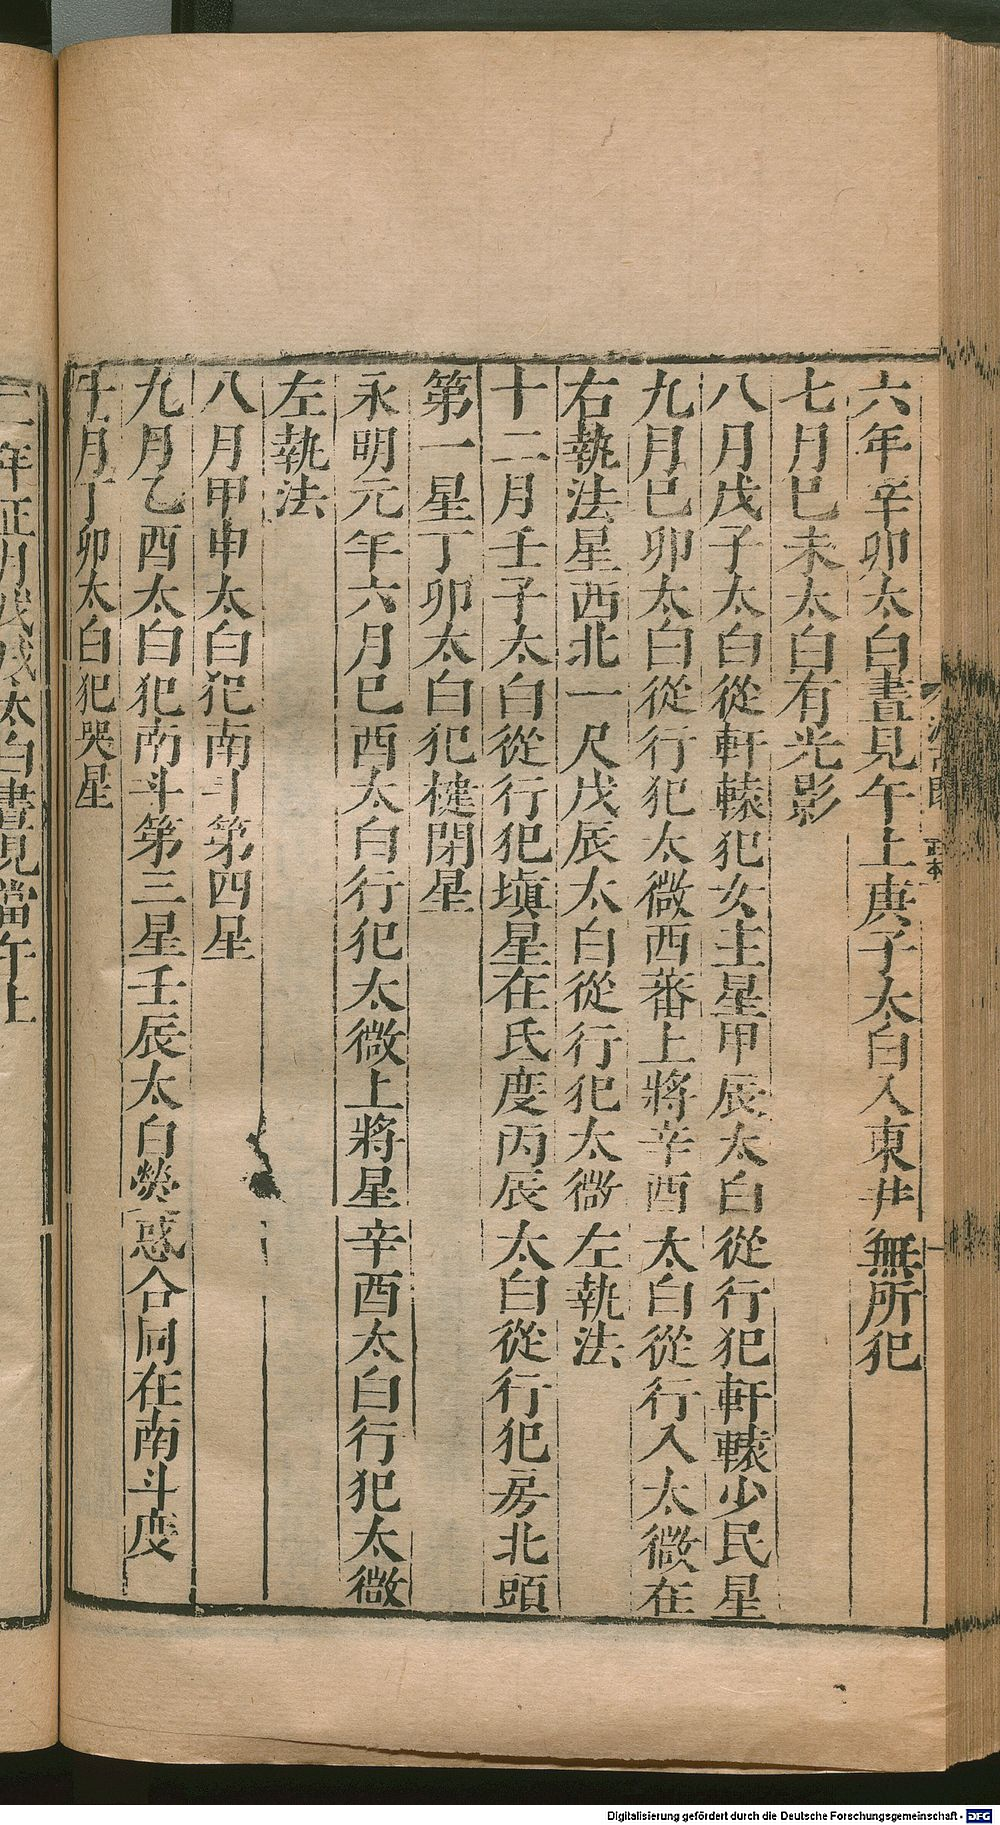 六年辛卯太白晝見午上庚子太白入東井無所犯
七月已未太白有光影
八月戊子太白從軒轅犯女主星甲辰太白從行犯軒轅少民星
九月已卯太白從行犯太微西蕃上將辛酉太白從行入太微在
右執法星西北一尺戊辰太白從行犯太微左執法
十二月壬子太白從行犯塡星在氐度丙辰太白從行犯房北頭
第一星丁卯太白犯楗閉星
永明元年六月已酉太白行犯太微上將星辛酉太白行犯太微
左執法
八月甲申太白犯南斗第四星
九月乙酉太白犯南斗第三星壬辰太白熒惑合同在南斗度
十一月丁卯太白犯哭星
二年正月戊戌太白晝見當午上
Digitalisierung gefördert durch die Deutsche Forschungsgemeinschaft - DFG